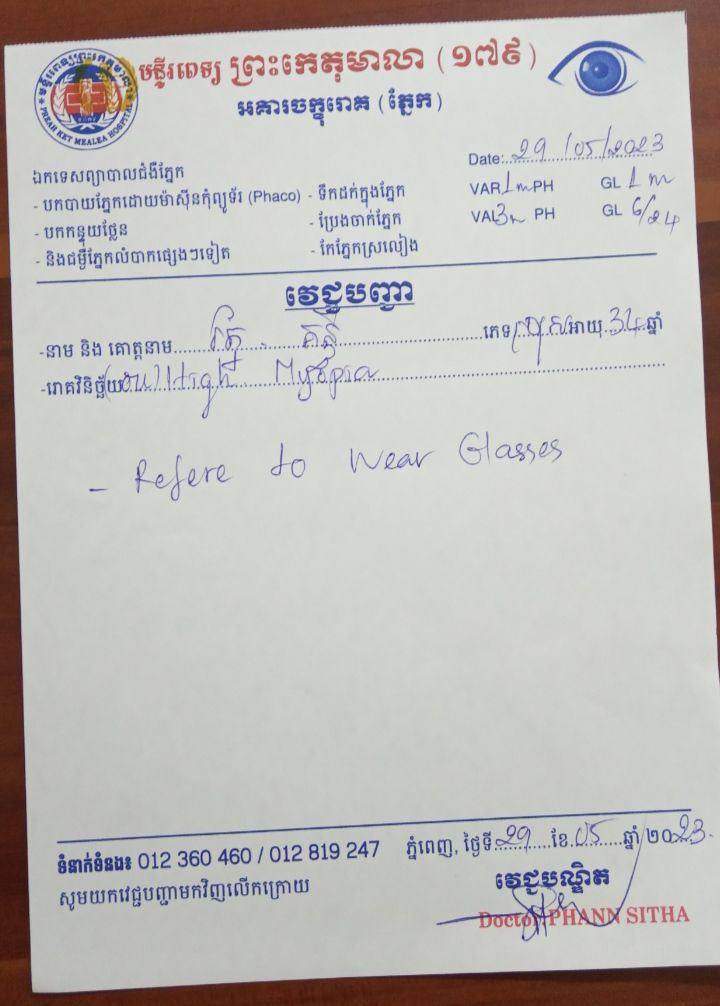 មន្ទីរពេទ្យ ព្រះកេតុមាលា (១៧៩)
អគារចក្ខុរោគ (ភ្នែក)
មន្ទីរពេទ្យព្រះកេតុមាលា
PREAH KET MEALEA HOSPITAL
Date: 29/05/2023
ឯកទេសព្យាបាលជំងឺភ្នែក
- បកបាយភ្នែកដោយម៉ាស៊ីនកុំព្យូទ័រ (Phaco) - ទឹកដក់ក្នុងភ្នែក
VAR 1m PH GL 1m
- បកកន្ទុយថ្លែន - ប្រែងចាក់ភ្នែក
VAL 3m PH GL 6/24
- និងជម្ងឺភ្នែកលំបាកផ្សេងៗទៀត - កែភ្នែកស្រលៀង
វេជ្ជបញ្ជា
-នាម និង គោត្តនាម ភេទ ប្រុស អាយុ 34 ឆ្នាំ
-រោគវិនិច្ឆ័យ (OU) High Myopia
- Refere to Wear Glasses
ទំនាក់ទំនង៖ 012 360 460 / 012 819 247
ភ្នំពេញ, ថ្ងៃទី 29 ខែ 05 ឆ្នាំ ២០23.
សូមយកវេជ្ជបញ្ជាមកវិញលើកក្រោយ
វេជ្ជបណ្ឌិត
Doctor PHANN SITHA